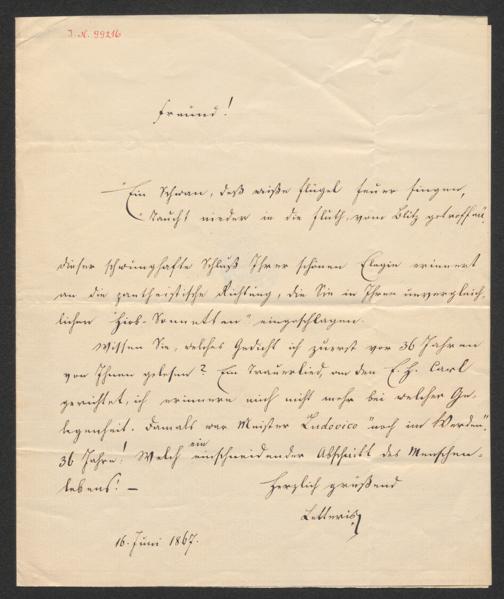 J. N. 99216
Freund!
Ein Schwan, deß weiße Flügel Feuer fingen,
Taucht nieder in die Fluth, vom Blitz getroffen".
Dieser schwunghafte Schluß Ihrer schönen Elegie erinnert
an die pantheistische Richtung, die Sie in Ihren unvergleich-
lichen "Hiob-Sonnetten" eingeschlagen.
Wissen Sie, welches Gedicht ich zuerst vor 36 Jahren
von Ihnen gelesen? Ein Trauerlied, an den E. H. Carl
gerichtet, ich erinnere mich nicht mehr bei welcher Ge-
legenheit. Damals war Meister Ludovico "noch im Werden".
36 Jahre! Welch ein einschneidender Abschnitt des Menschen-
lebens! —
Herzlich grüßend
Letteris
16. Juni 1867.